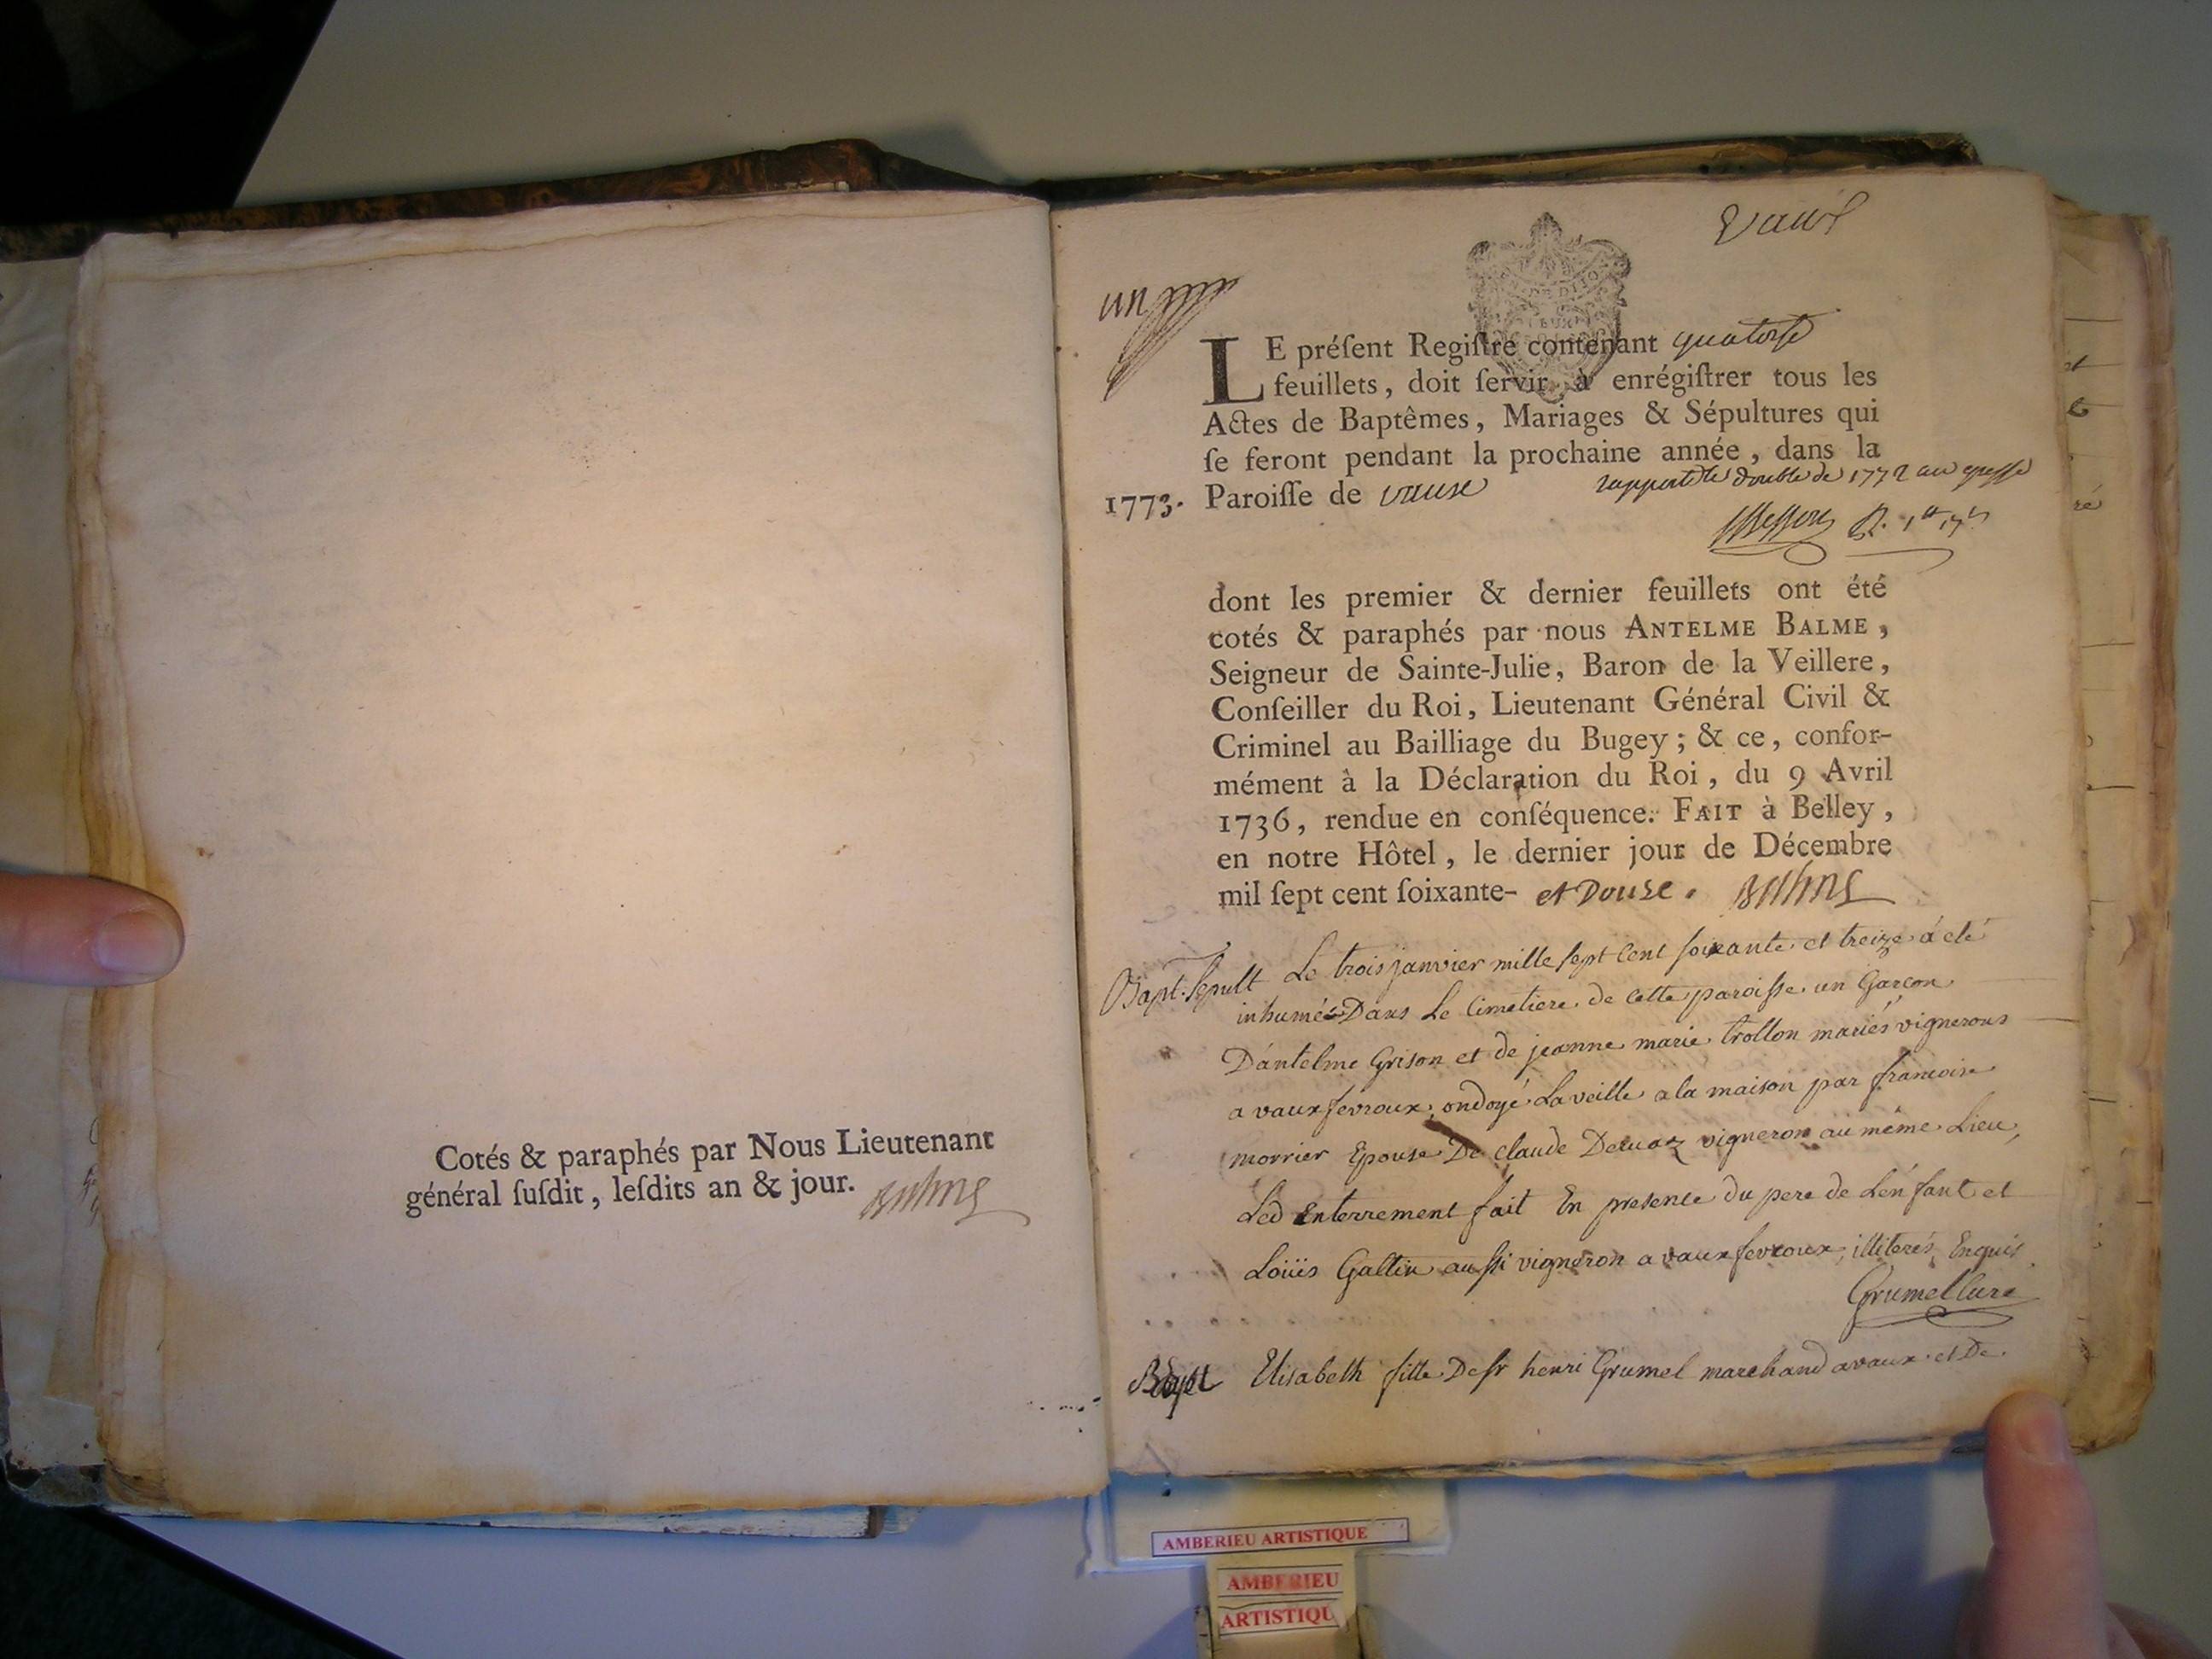 Cotés & paraphés par Nous Lieutenant
général ſuſdit, leſdits an & jour. Balme
Vaux
un
LE préſent Regiſtre contenant quatorſe
feuillets, doit ſervir à enrégiſtrer tous les
Actes de Baptêmes, Mariages & Sépultures qui
ſe feront pendant la prochaine année, dans la
1773. Paroiſſe de vaux
rapporté le double de 1772 au greffe
dont les premier & dernier feuillets ont été
cotés & paraphés par nous ANTELME BALME,
Seigneur de Sainte-Julie, Baron de la Veillere,
Conſeiller du Roi, Lieutenant Général Civil &
Criminel au Bailliage du Bugey; & ce, confor-
mément à la Déclaration du Roi, du 9 Avril
1736, rendue en conſéquence. FAIT à Belley,
en notre Hôtel, le dernier jour de Décembre
mil ſept cent ſoixante- et Douse. Balme
Bapt. Sepult Le trois janvier mille sept cent soixante et treize à eté
inhumé Dans Le Cimetiere de cette paroisse un Garcon
D'antelme Grison et de jeanne marie trollon mariés vignerons
a vaux fevroux, ondoyé La veille a la maison par francoise
morrier Epouse De claude Deruaz vigneron au même Lieu,
Led Enterrement fait En presence du pere de L'enfant et
Loüis Galtin aussi vigneron a vaux fevroux, illiterés, Enquis
Grumel Curé
Bapt Elisabeth fille De sr henri Grumel marchand a vaux et De
AMBERIEU ARTISTIQUE
AMBERIEU
ARTISTIQU